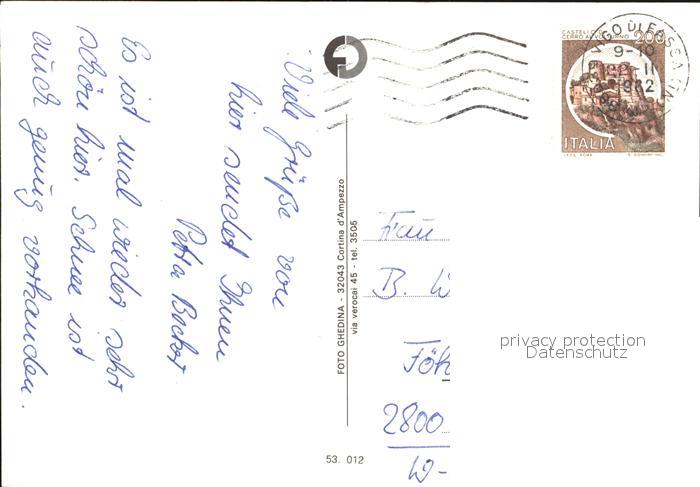 Viele Grüße von
hier sendet Ihnen
Petra Bockst
Es ist mal wieder sehr
schön hier. Schnee ist
auch genug vorhanden.
FOTO GHEDINA - 32043 Cortina d'Ampezzo
via verocai 45 - tel. 3505
53. 012
CASTELLO DI
CERRO AL VOLTURNO
200
ITALIA
I.P.Z.S. ROMA
VIGO DI FASSA
9-10
1982
Frau
B. W
Föh
2800
W-
privacy protection
Datenschutz